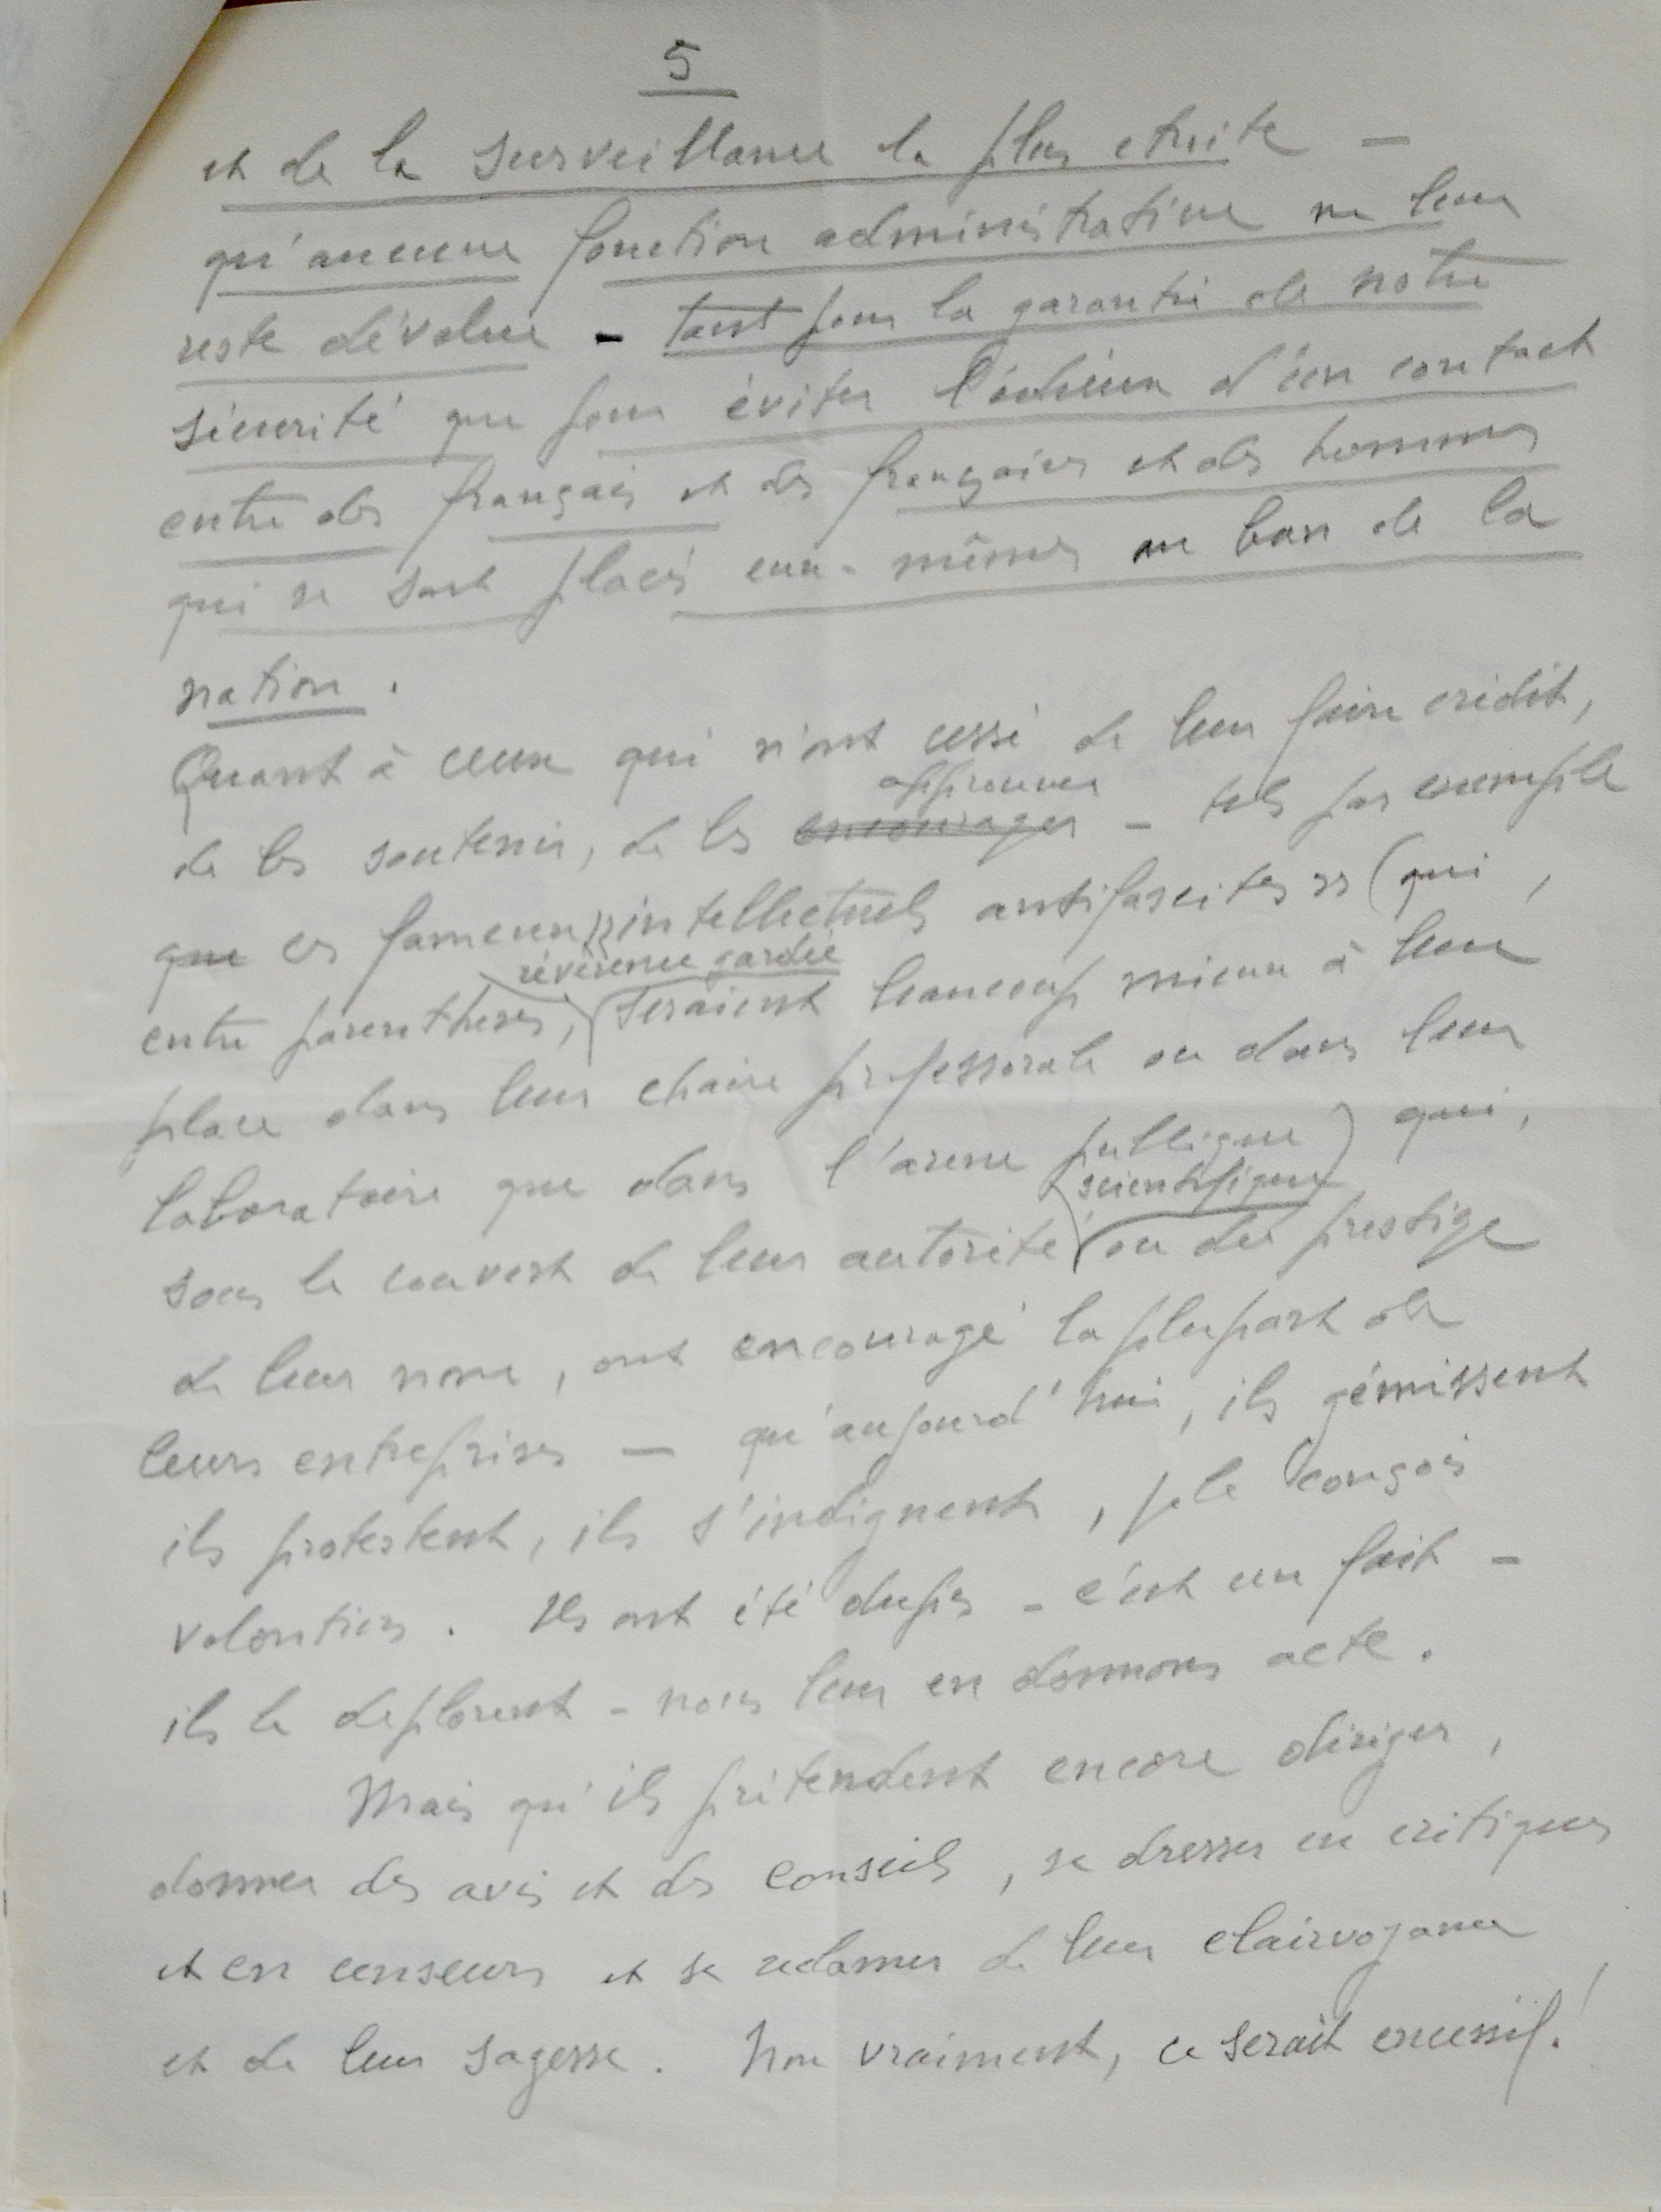 5
et de la surveillance la plus etroite —
qu'aucune fonction administrative ne leur
reste dévolue - tant pour la garantie de notre
sécurité que pour éviter l'odieux d'un contact
entre des français et des françaises et des hommes
qui se sont placés eux-mêmes au ban de la
nation.
Quant à ceux qui n'ont cessé de leur faire crédit,
approuver
de les soutenir, de les encourager - tels par exemple
que ces fameux "intellectuels antifascites" (qui,
révérence gardée
entre parenthèses, seraient beaucoup mieux à leur
place dans leur chaire professorale ou dans leur
laboratoire que dans l'arene publique) qui,
scientifique
sous le couvert de leur autorité ou du prestige
de leur nom, ont encouragé la plupart de
leurs entreprises — qu'aujourd'hui, ils gémissent
ils protestent, ils s'indignent, je le conçois
volontiers. Ils ont été dupes - c'est un fait -
ils le deplorent - nous leur en donnons acte.
Mais qu'ils prétendent encore diriger,
donner des avis et des conseils, se dresser en critiques
et en censeurs et se reclamer de leur clairvoyance
et de leur sagesse. Non vraiment, ce serait excessif!